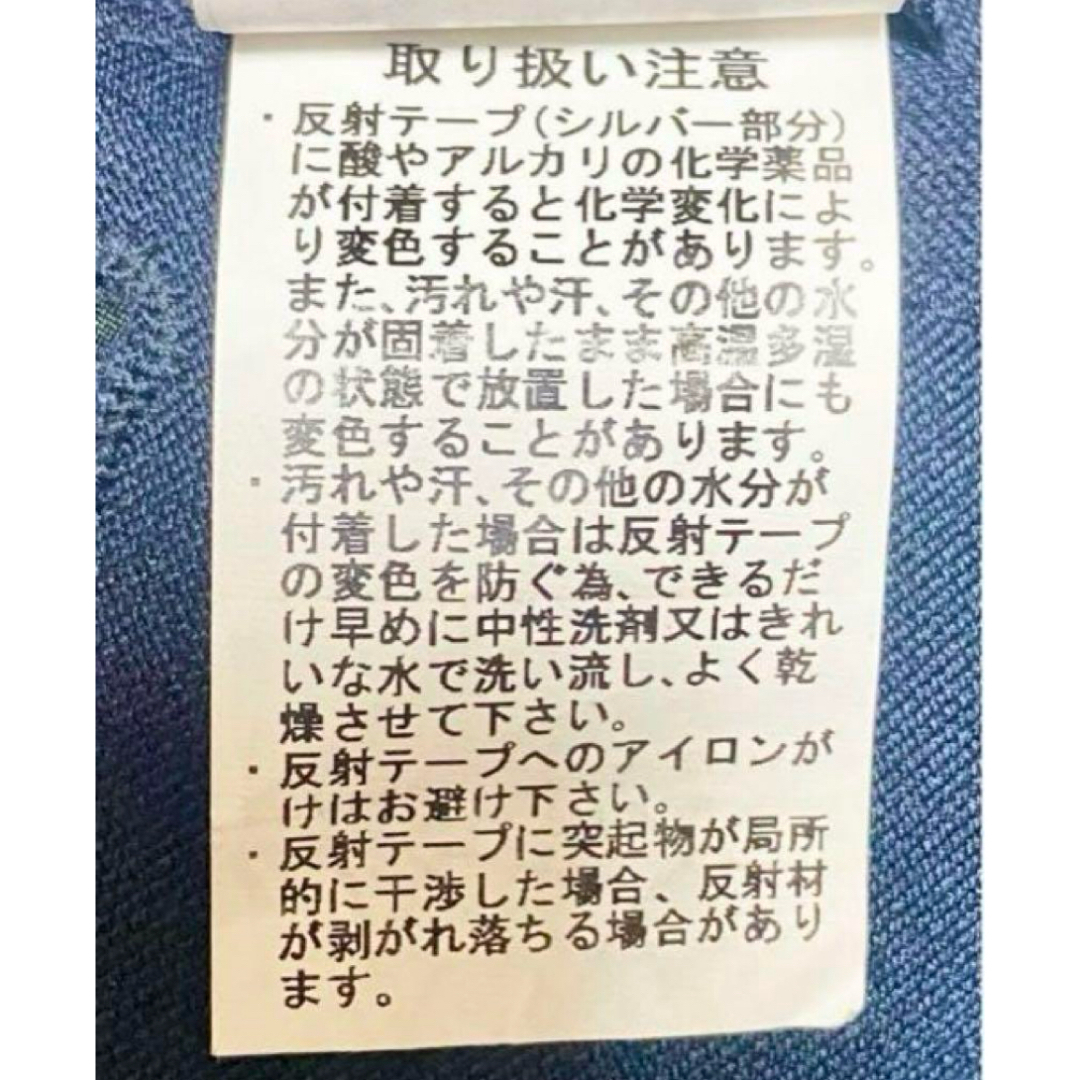 取り扱い注意
・反射テープ(シルバー部分)
に酸やアルカリの化学薬品
が付着すると化学変化によ
り変色することがあります。
また、汚れや汗、その他の水
分が固着したまま高温多湿
の状態で放置した場合にも
変色することがあります。
・汚れや汗、その他の水分が
付着した場合は反射テープ
の変色を防ぐ為、できるだ
け早めに中性洗剤又はきれ
いな水で洗い流し、よく乾
燥させて下さい。
・反射テープへのアイロンが
けはお避け下さい。
・反射テープに突起物が局所
的に干渉した場合、反射材
が剥がれ落ちる場合があり
ます。